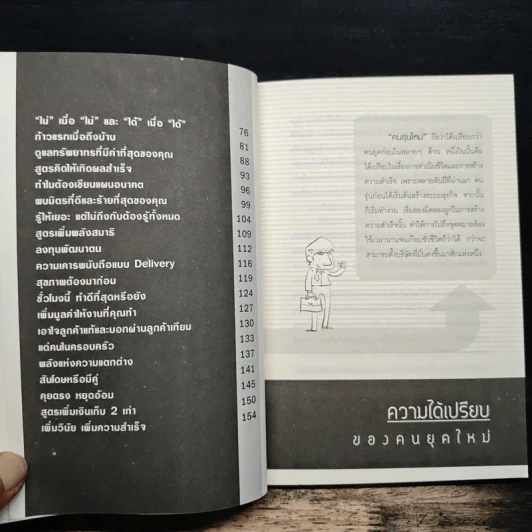 "ไม่" เมื่อ "ไม่" และ "ได้" เมื่อ "ได้" 76
ก้าวแรกเมื่อถึงบ้าน 81
ดูแลทรัพยากรที่มีค่าที่สุดของคุณ 88
สูตรคิดให้เกิดผลสำเร็จ 93
ทำไมต้องเขียนแผนอนาคต 96
พบมิตรที่ดีและร้ายที่สุดของคุณ 99
รู้ให้เยอะ แต่ไม่ถึงกับต้องรู้ทั้งหมด 104
สูตรเพิ่มพลังสมาธิ 109
ลงทุนพัฒนาตน 111
ความเคารพนับถือแบบ Delivery 116
สุขภาพต้องมาก่อน 120
ชั่วโมงนี้ ทำดีที่สุดหรือยัง 124
เพิ่มมูลค่าให้งานที่คุณทำ 127
เอาใจลูกค้าแท้และบอกผ่านลูกค้าเทียม 130
แด่คนในครอบครัว 133
พลังแห่งความแตกต่าง 137
สันโดษหรือมีคู่ 141
คุยตรง หยุดอ้อม 145
สูตรเพิ่มเงินเก็บ 2 เท่า 150
เพิ่มวินัย เพิ่มความสำเร็จ 154
"คนรุ่นใหม่" ถือว่าได้เปรียบกว่า
คนยุคก่อนในหลายๆ ด้าน หนึ่งในนั้นคือ
ได้เปรียบในเรื่องการดำเนินชีวิตและการสร้าง
ความสำเร็จ เพราะหลายพันปีที่ผ่านมา คน
รุ่นก่อนได้เริ่มต้นสร้างระบบธุรกิจ จากนั้น
ก็เริ่มทำงาน เริ่มลองผิดลองถูกในการสร้าง
ความสำเร็จนั้น ทำให้การไปถึงจุดหมายต้อง
ใช้เวลานานจนเกือบชั่วชีวิตก็ว่าได้ กว่าจะ
สามารถตั้งบริษัทที่มั่นคงขึ้นมาสักแห่งหนึ่ง
ความได้เปรียบ
ของคนยุคใหม่